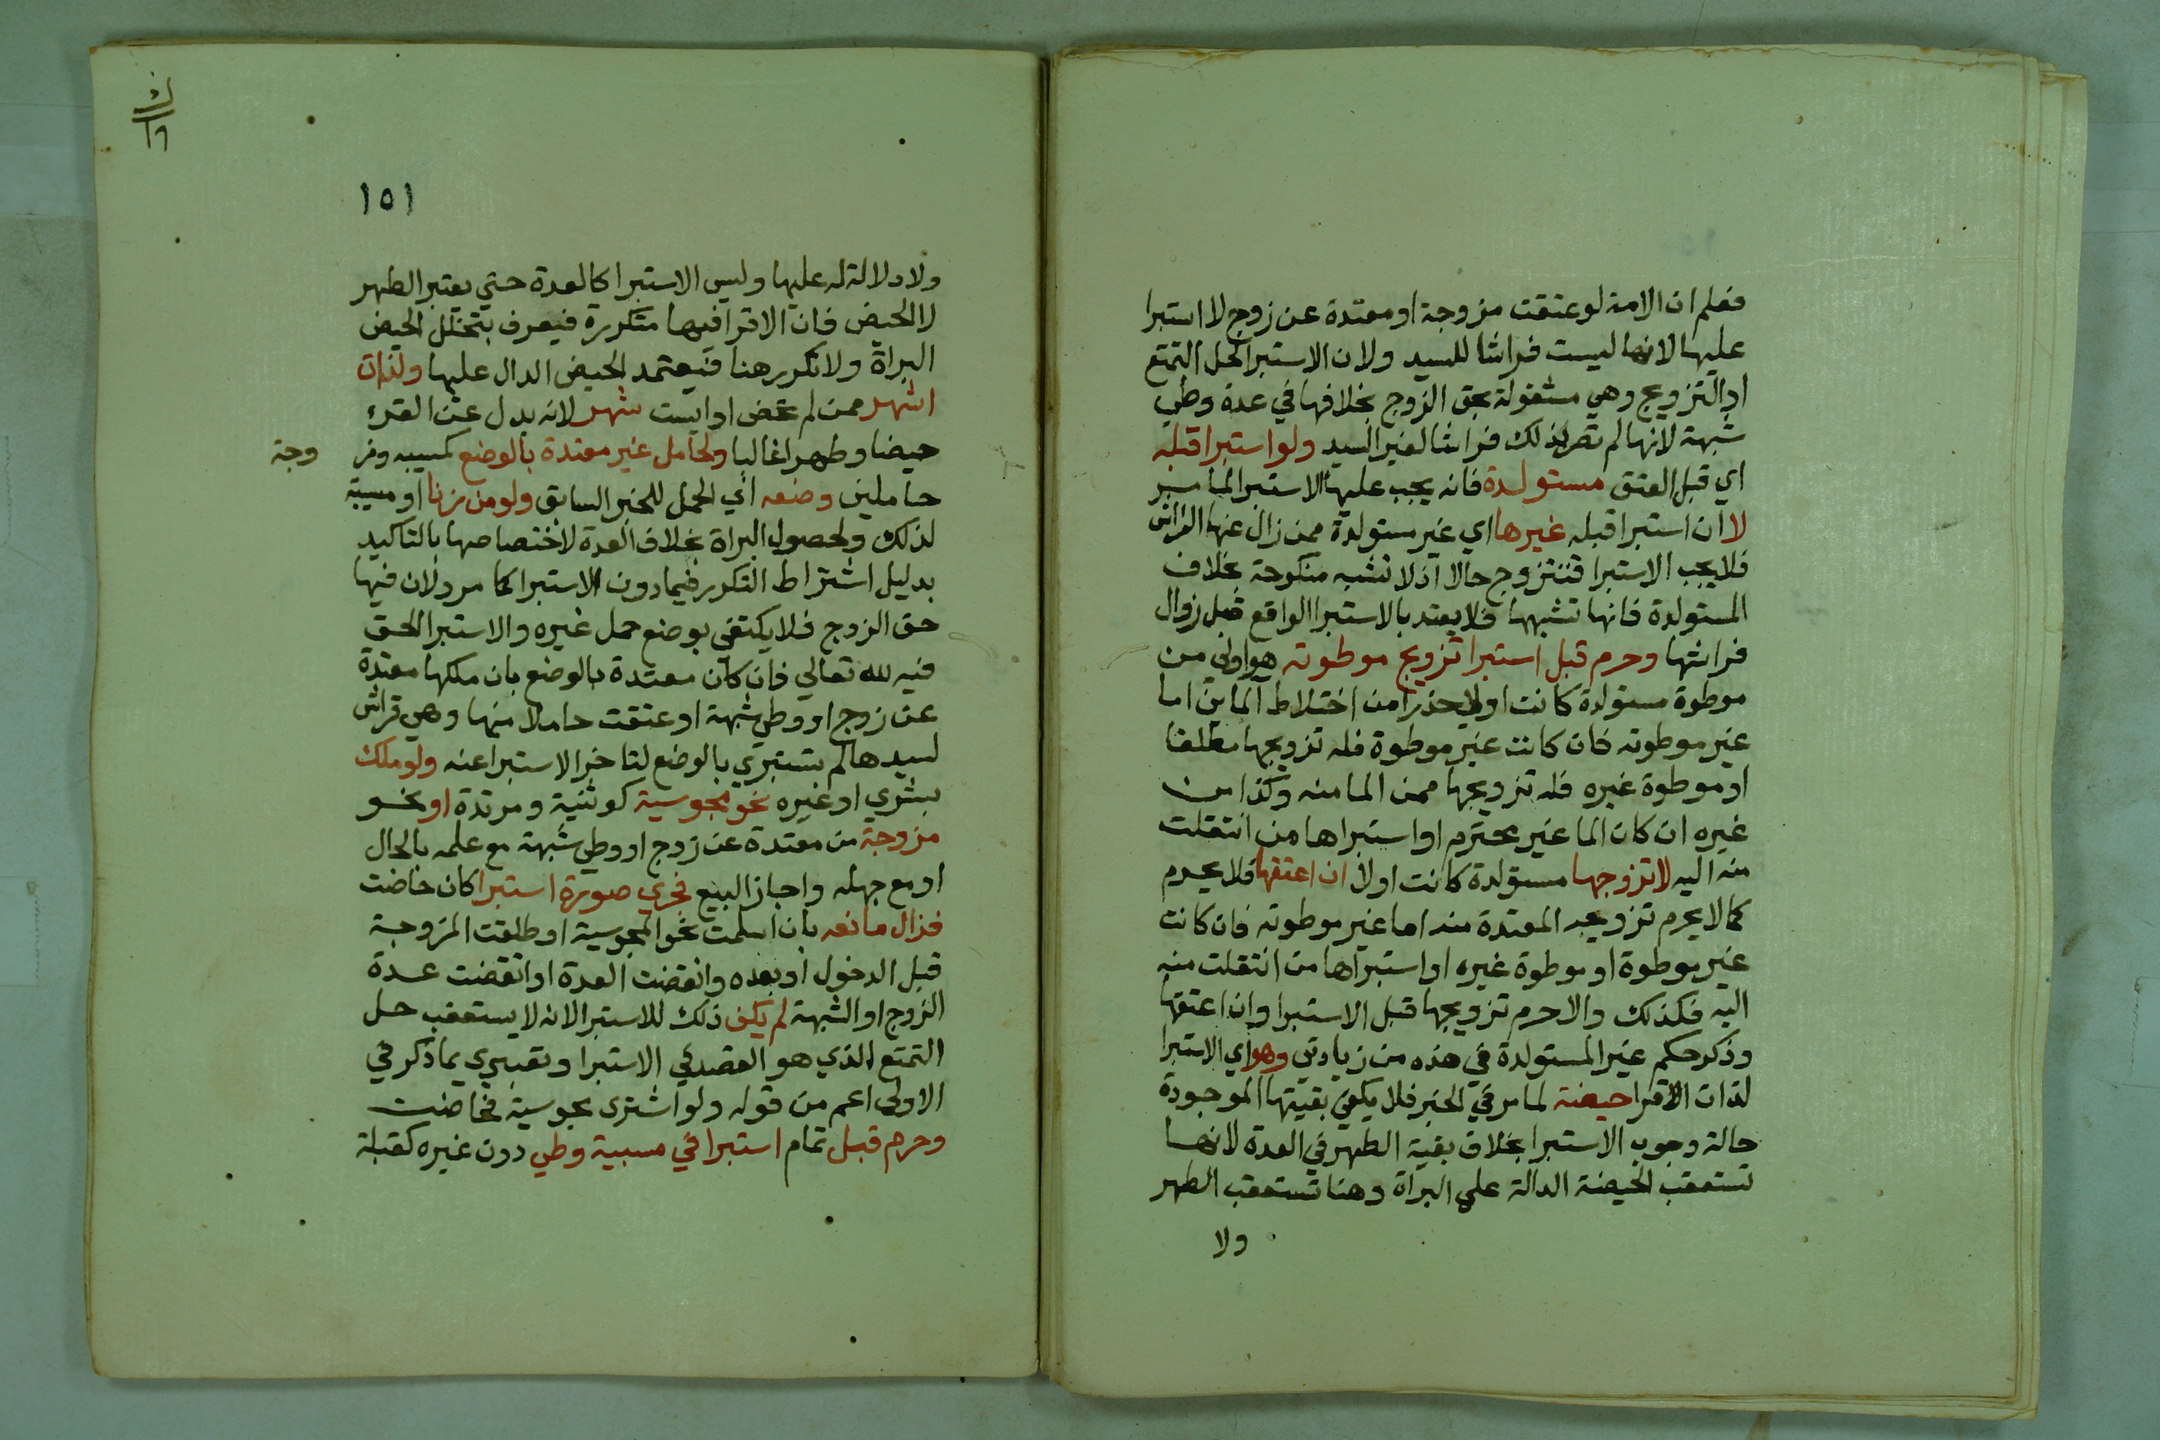 فعلم ان الامة لو عتقت مزوجة او معتدة عن زوج لا استبرا
عليها لانها ليست فراشا للسيد ولان الاستبرا لحل التمتع
او التزويج وهي مشغولة بحق الزوج بخلافها في عدة وطي
شبهة لانها لم تصر بذلك فراشا لغير السيد ولو استبرا قبله
اي قبل العتق مستولدة فانه يجب عليها الاستبرا لما مر
لا ان استبرا قبله غيرها اي غير مستولدة ممن زال عنها الفراش
فلا يجب الاستبرا فتتزوج حالا اذ لا تشبه منكوحة بخلاف
المستولدة فانها تشبهها فلا يعتد بالاستبرا الواقع قبل زوال
فراشها وحرم قبل استبرا تزويج موطوته هو اولى من
موطوة مستولدة كانت اولا حذرا من اختلاط الماين اما
غير موطوته فان كانت غير موطوة فله تزويجها مطلقا
او موطوة غيره فله تزويجها ممن الما منه وكذا من
غيره ان كان الما غير محترم او استبراها من انتقلت
منه اليه لا تزوجها مستولدة كانت اولا ان اعتقها فلا يحرم
كما لا يحرم تزوجه المعتدة منه اما غير موطوته فان كانت
غير موطوة او موطوة غيره او استبراها من انتقلت منه
اليه فكذلك والا حرم تزويجها قبل الاستبرا وان اعتقها
وذكر حكم غير المستولدة في هذه من زيادتي وهو اي الاستبرا
لذات الاقرا حيضة لما مر في الخبر فلا يكفي بقيتها الموجودة
حالة وجوب الاستبرا بخلاف بقية الطهر في العدة لانها
تستعقب الحيضة الدالة على البراة وهنا تستعقب الطهر
ولا
١٥١
ولا دلالة له عليها وليس الاستبرا كالعدة حتي يعتبر الطهر
لا الحيض فان الاقرا فيها متكررة فيعرف بتخلل الحيض
البراة ولا تكرر هنا فيعتمد الحيض الدال عليها ولذات
اشهر ممن لم تحض او ايست شهر لانه بدل عن القرء
حيضا وطهرا غالبا ولحامل غير معتدة بالوضع كمسبيه ومز وجة
حاملين وضعه اي الحمل للخبر السابق ولو من زنا او مسبية
لذلك ولحصول البراة بخلاف العدة لاختصاصها بالتاكيد
بدليل اشتراط التكرر فيما دون الاستبرا كما مر ولان فيها
حق الزوج فلا يكتفي بوضع حمل غيره والاستبرا الحق
فيه لله تعالي فان كان معتدة بالوضع بان ملكها معتدة
عن زوج او وطي شبهة او عتقت حاملا منهما وهي فراش
لسيدها لم تستبري بالوضع لتاخر الاستبرا عنه ولو ملك
بشري او غيره نحو مجوسية كوثنية ومرتدة او نحو
مزوجة من معتدة عن زوج او وطي شبهة مع علمه بالحال
او مع جهله واجاز البيع فجري صورة استبرا كان حاضت
فزال مانعه بان اسلمت نحو المجوسية او طلقت المزوجة
قبل الدخول او بعده وانقضت العدة او انقضت عدة
الزوج او الشبهة لم يكف ذلك للاستبرا لانه لا يستعقب حل
التمتع الذي هو القصد في الاستبرا وتعبيري بما ذكر في
الاولى اعم من قوله ولو اشترى مجوسية فحاضت
وحرم قبل تمام استبرا في مسبية وطي دون غيره كقبلة